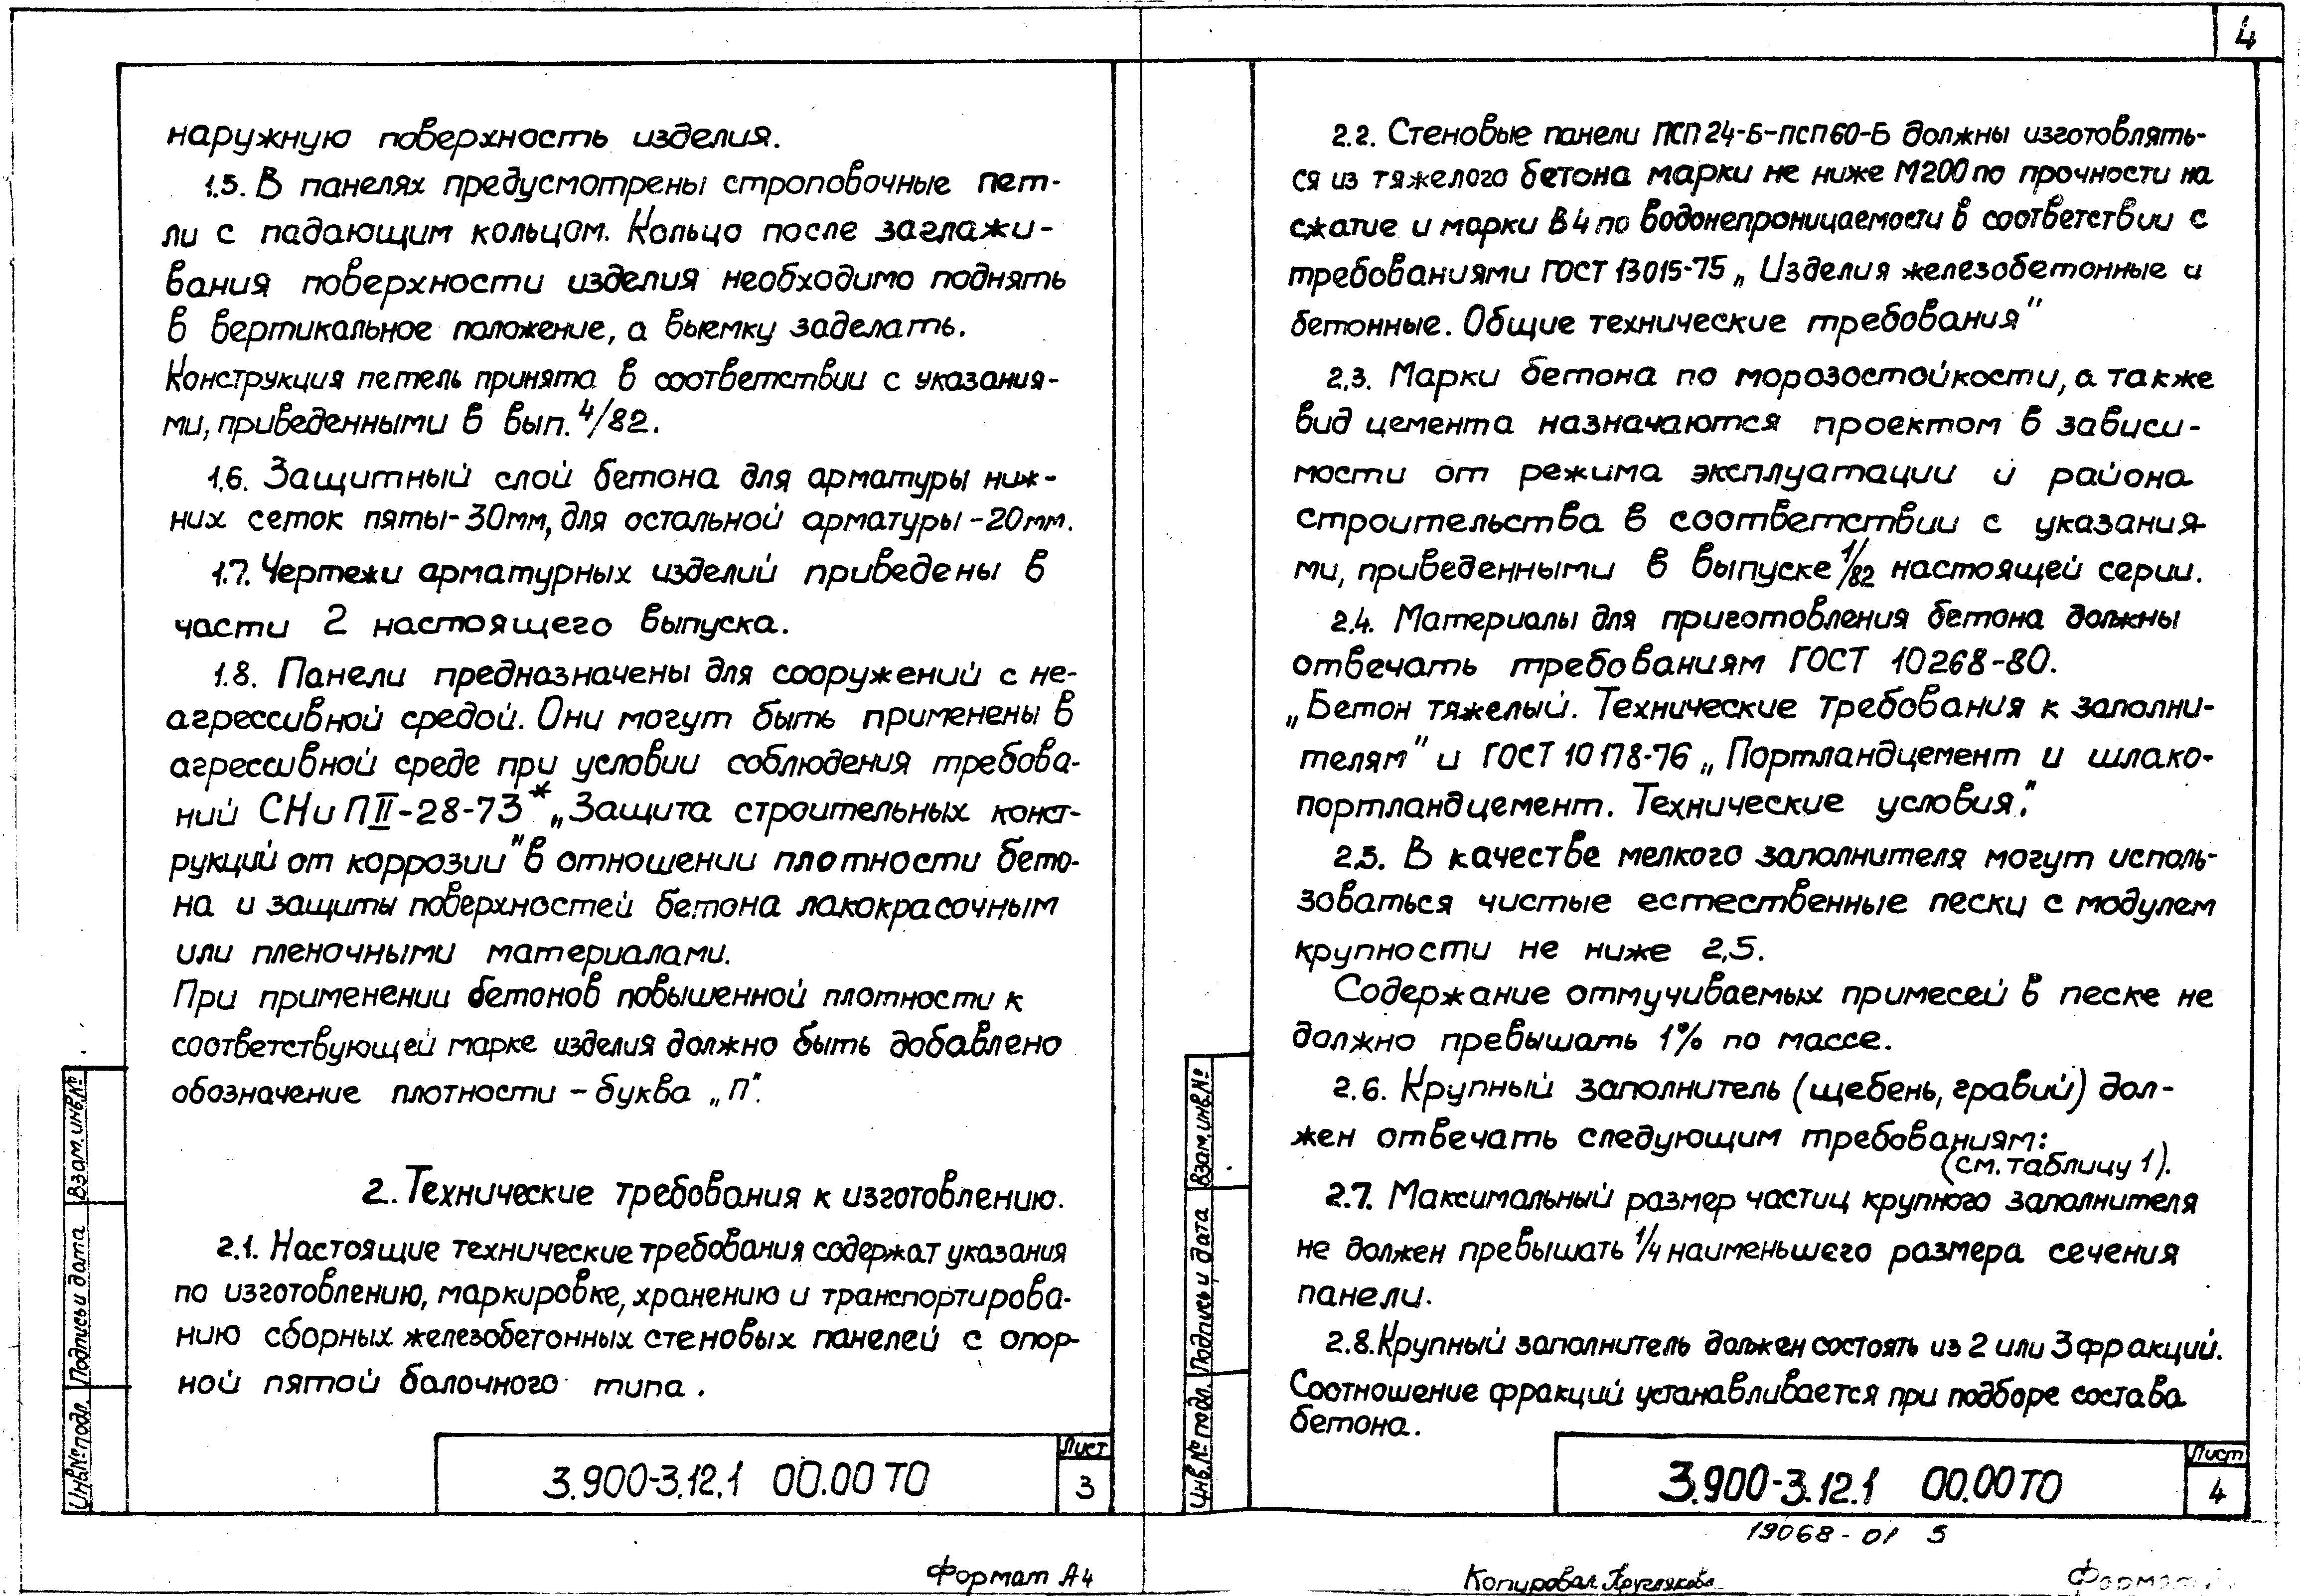 4
наружную поверхность изделия.
1.5. В панелях предусмотрены строповочные пет-
ли с падающим кольцом. Кольцо после заглажи-
вания поверхности изделия необходимо поднять
в вертикальное положение, а выемку заделать.
Конструкция петель принята в соответствии с указания-
ми, приведенными в вып. 4/82.
1.6. Защитный слой бетона для арматуры ниж-
них сеток пяты-30мм, для остальной арматуры-20мм.
1.7. Чертежи арматурных изделий приведены в
части 2 настоящего выпуска.
1.8. Панели предназначены для сооружений с не-
агрессивной средой. Они могут быть применены в
агрессивной среде при условии соблюдения требова-
ний СНиП II-28-73* „Защита строительных конст-
рукций от коррозии" в отношении плотности бето-
на и защиты поверхностей бетона лакокрасочным
или пленочными материалами.
При применении бетонов повышенной плотности к
соответствующей марке изделия должно быть добавлено
обозначение плотности - буква „П".
2. Технические требования к изготовлению.
2.1. Настоящие технические требования содержат указания
по изготовлению, маркировке, хранению и транспортирова-
нию сборных железобетонных стеновых панелей с опор-
ной пятой балочного типа.
Взам. инв. №
Подпись и дата
Инв. № подл.
3.900-3.12.1 00.00 ТО
Лист
3
Формат А4
2.2. Стеновые панели ПСП24-Б-ПСП60-Б должны изготовлять-
ся из тяжелого бетона марки не ниже М200 по прочности на
сжатие и марки В4 по водонепроницаемости в соответствии с
требованиями ГОСТ 13015-75 „Изделия железобетонные и
бетонные. Общие технические требования"
2.3. Марки бетона по морозостойкости, а также
вид цемента назначаются проектом в зависи-
мости от режима эксплуатации и района
строительства в соответствии с указания-
ми, приведенными в выпуске 1/82 настоящей серии.
2.4. Материалы для приготовления бетона должны
отвечать требованиям ГОСТ 10268-80.
„Бетон тяжелый. Технические требования к заполни-
телям" и ГОСТ 10178-76 „Портландцемент и шлако-
портландцемент. Технические условия".
2.5. В качестве мелкого заполнителя могут исполь-
зоваться чистые естественные пески с модулем
крупности не ниже 2,5.
Содержание отмучиваемых примесей в песке не
должно превышать 1% по массе.
2.6. Крупный заполнитель (щебень, гравий) дол-
жен отвечать следующим требованиям:
(см. таблицу 1).
2.7. Максимальный размер частиц крупного заполнителя
не должен превышать 1/4 наименьшего размера сечения
панели.
2.8. Крупный заполнитель должен состоять из 2 или 3 фракций.
Соотношение фракций устанавливается при подборе состава
бетона.
Взам. инв. №
Подпись и дата
Инв. № подл.
3.900-3.12.1 00.00 ТО
Лист
4
19068-01 5
Копировал Круглякова
Формат